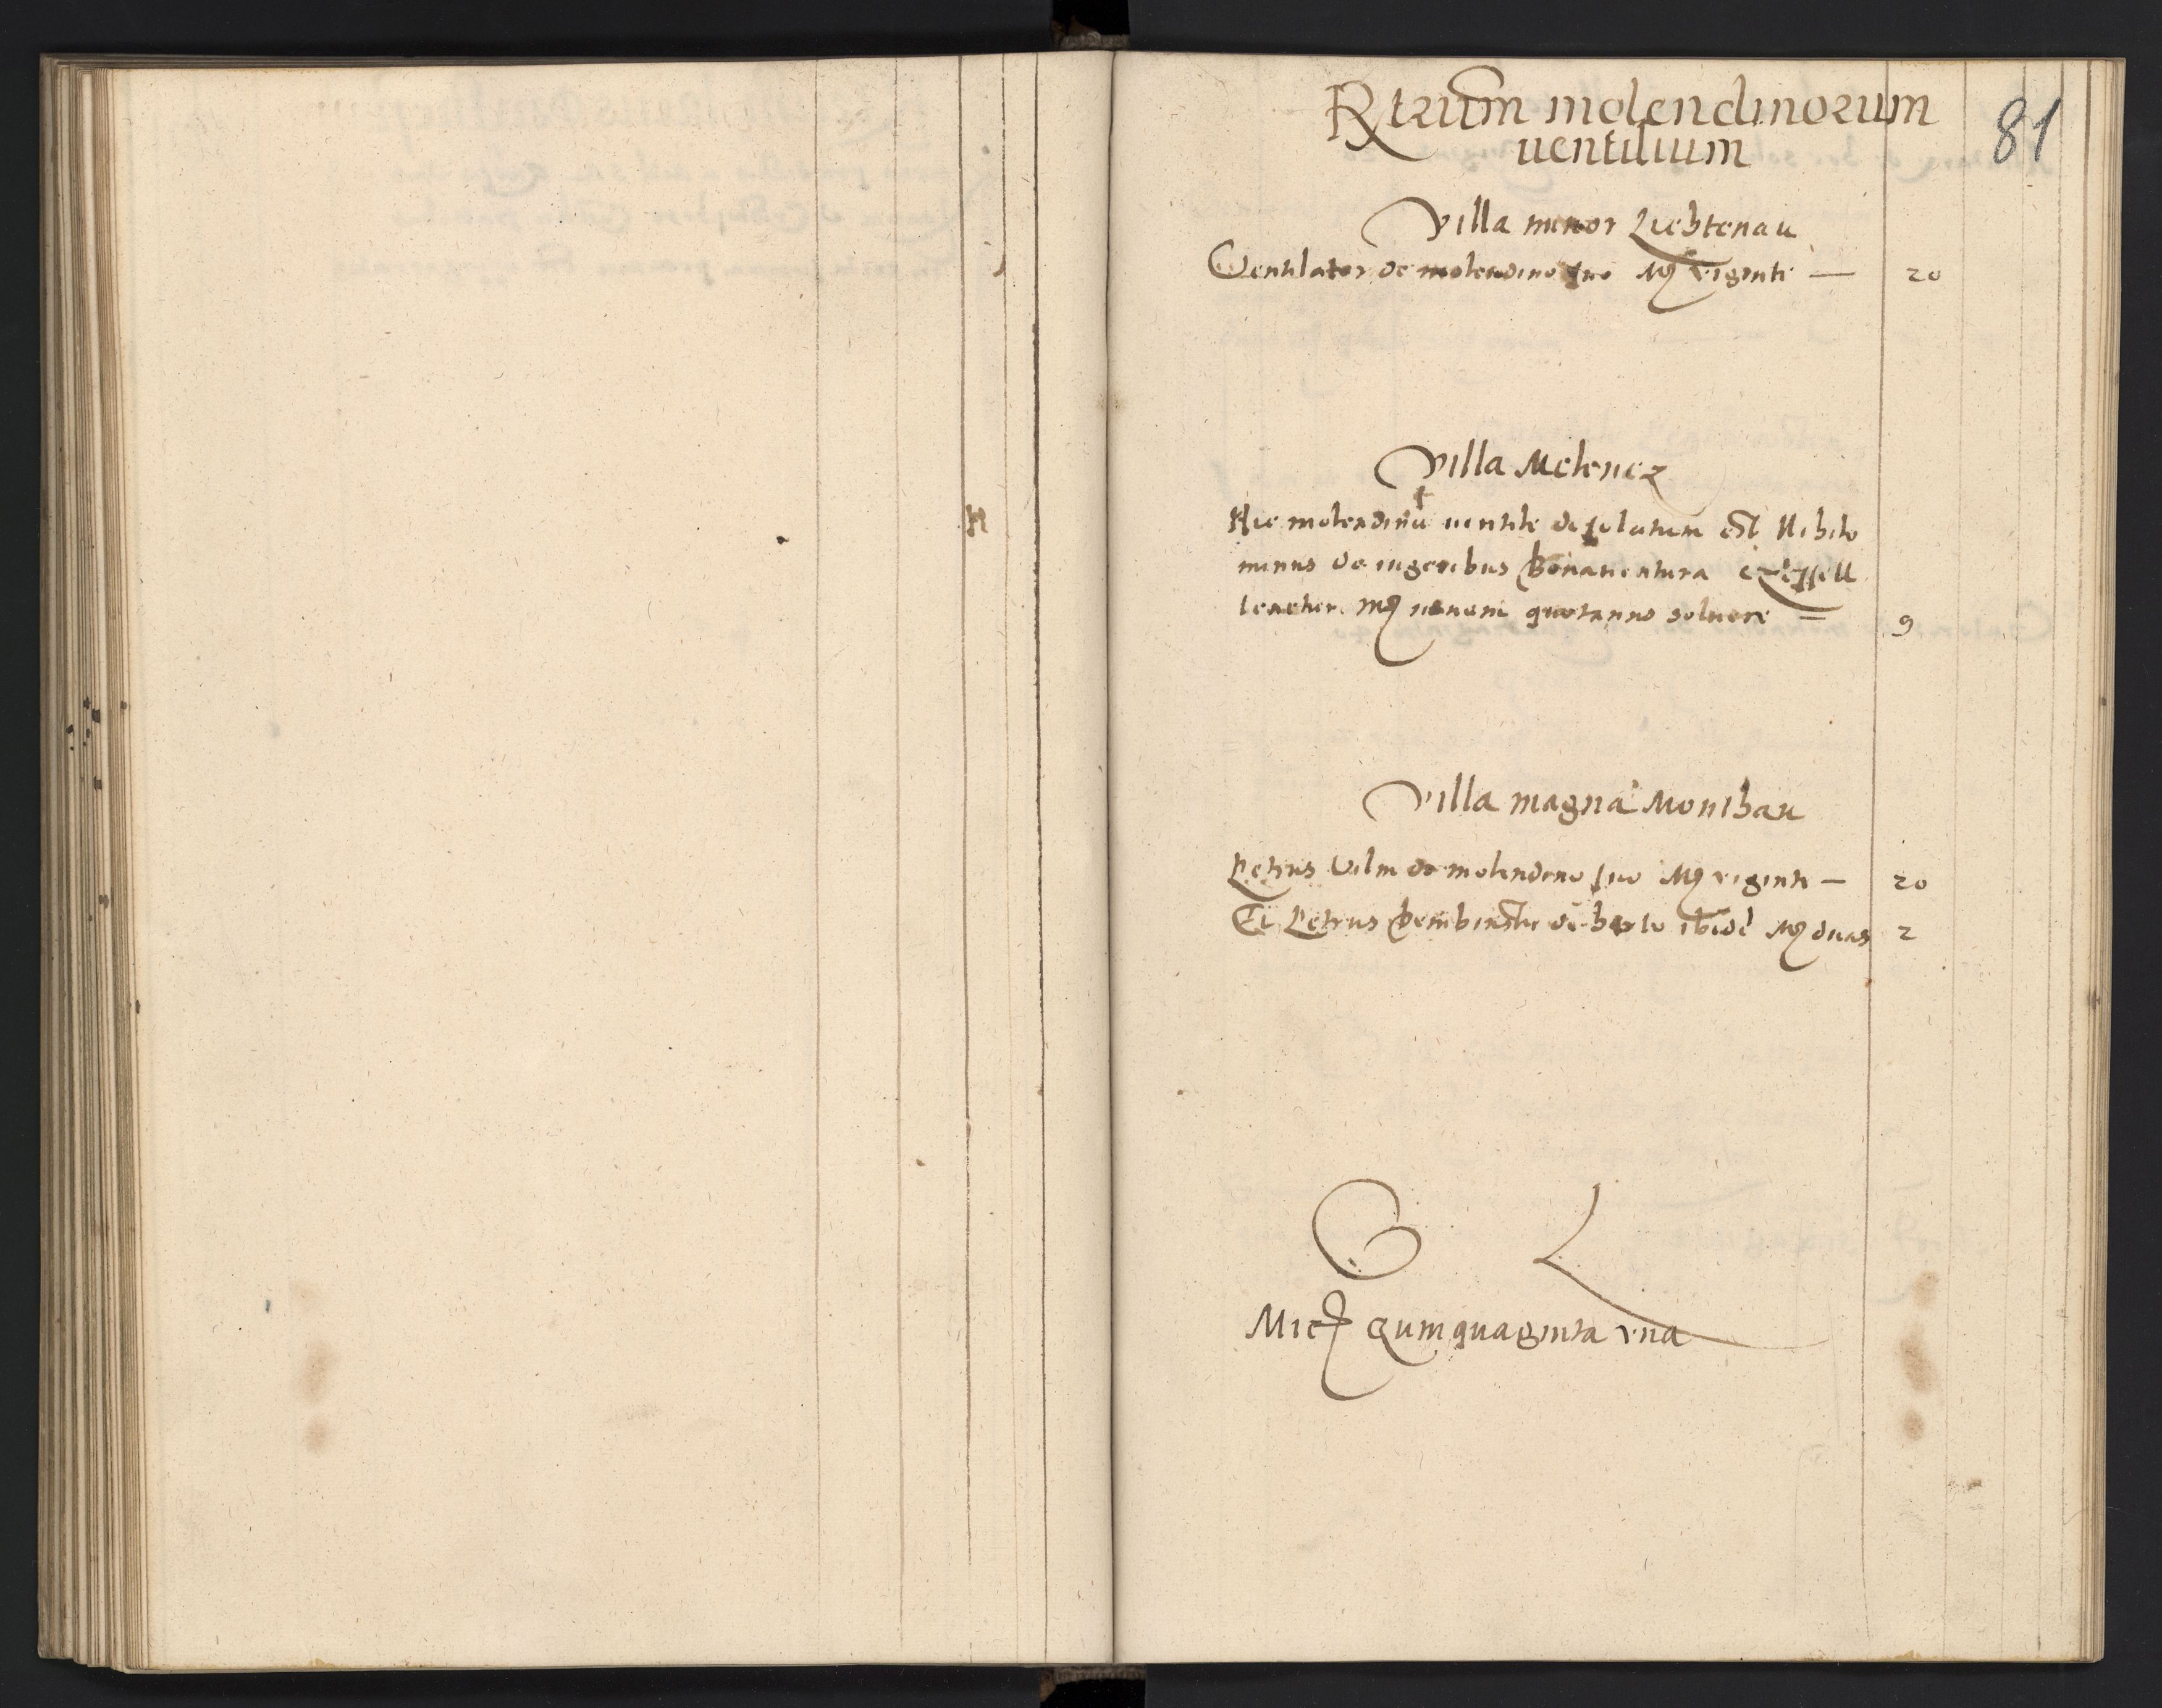 Rtrum molendinorum
uentilium
81
Villa minor Liechtenau
Ventilator de molendino suo M viginti — 20
Villa Melenez
H
Hic molendinu uentile desolatum est Nihilo
minus de iugeribus Bonauentura
tenetur M nouem quotannis soluere — 9
Villa magna Monthau
Petrus Vilm de molendino suo M viginti — 20
Et Petrus de horto ibide M duas 2
L
quinquaginta vna